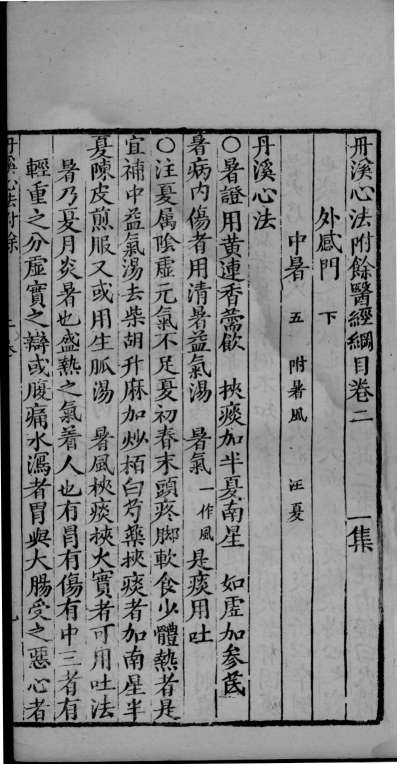 丹溪心法附餘醫經綱目卷二　一集
外感門 下
中暑 五 附暑風 注夏
丹溪心法
○暑證用黄連香薷飲 挾痰加半夏南星 如虛加參芪
暑病内傷者用清暑益氣湯 暑氣 一作風 是痰用吐
○注夏属陰虛元氣不足夏初春末頭疼脚軟食少體熱者是
宜補中益氣湯去柴胡升麻加炒栢白芍藥挾痰者加南星半
夏陳皮煎服又或用生脈湯 暑風挾痰挾火實者可用吐法
暑乃夏月炎暑也盛熱之氣着人也有胃有傷有中三者有
輕重之分虛實之辯或腹痛水瀉者胃與大腸受之惡心者
丹溪心法附餘